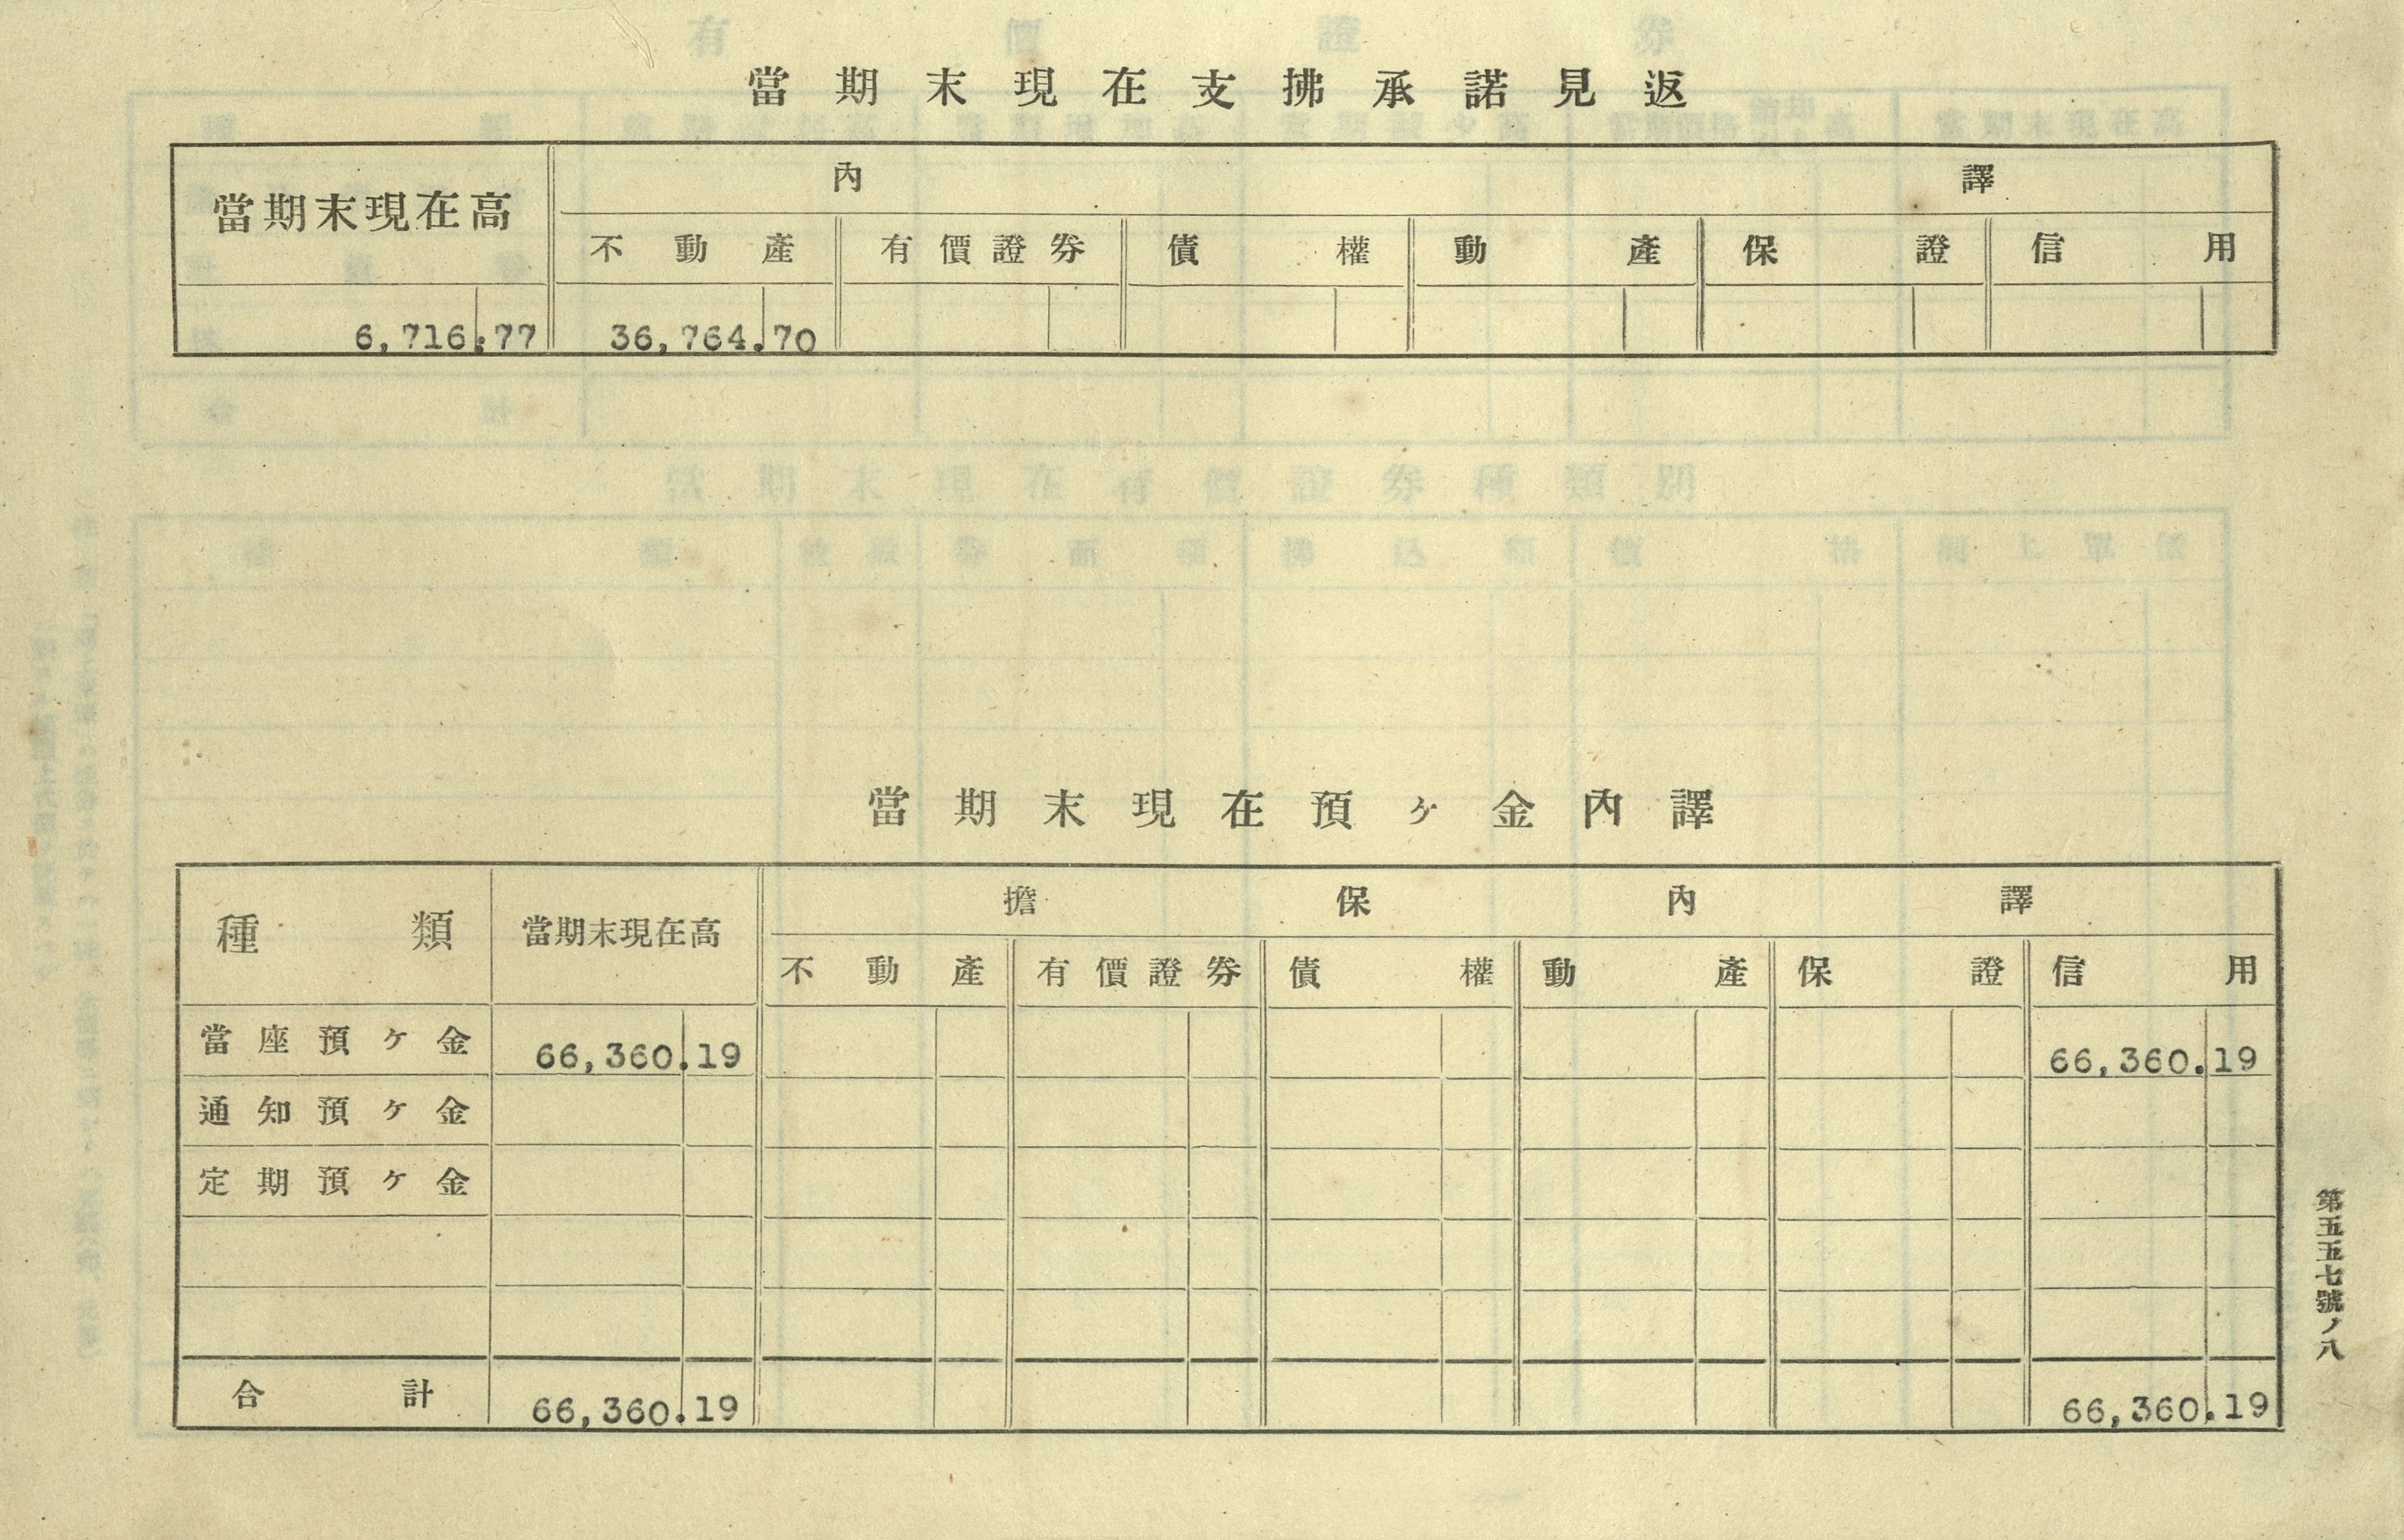 當期末現在支拂承諾見返
當期末現在高 內譯
不動產 有價證券 債權 動產 保證 信用
6,716.77 36,764.70
當期末現在預ヶ金內譯
種類 當期末現在高 擔保內譯
不動產 有價證券 債權 動產 保證 信用
當座預ケ金 66,360.19 66,360.19
通知預ケ金
定期預ケ金
合計 66,360.19 66,360.19
第五五七號ノ八